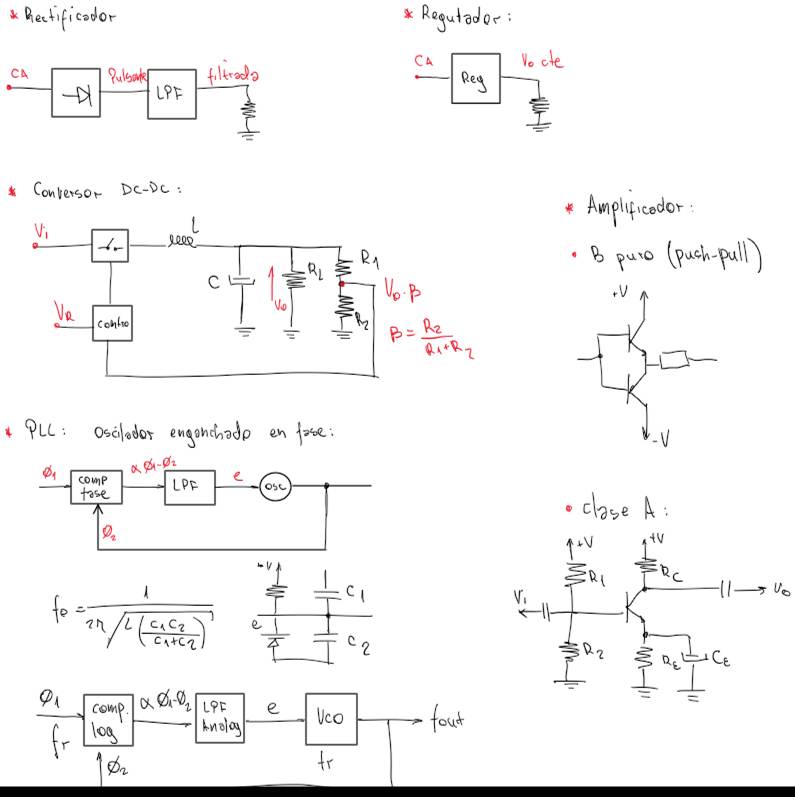 * Rectificador
CA
Pulsante
LPF
filtrada
* Regulador:
CA
Reg
Vo cte
* Conversor DC-DC:
Vi
L
C
Vo
RL
R1
R2
Vo·β
β = R2 / (R1+R2)
VR
contro
* Amplificador:
• B puro (push-pull)
+V
-V
* PLL: Oscilador enganchado en fase:
Ø1
comp fase
α Ø1-Ø2
LPF
e
osc
Ø2
fo = 1 / (2π √(L (C1C2 / (C1+C2))))
+V
e
C1
C2
• Clase A:
+V
+V
R1
RC
Vi
Vo
R2
RE
CE
Ø1
fr
comp. log
α Ø1-Ø2
LPF Analog
e
VCO
fr
fout
Ø2